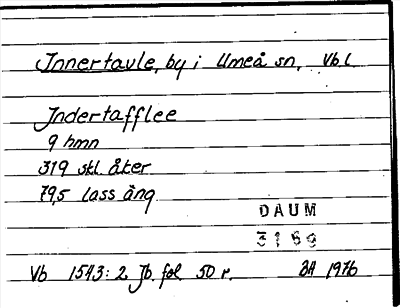 Innertavle, by i Umeå sn, Vb.l.
Indertafflee
9 hmn
319 skl. åker
79,5 lass äng
DAUM
3169
Vb 1543: 2 Jb. fol 50 r. BH 1976